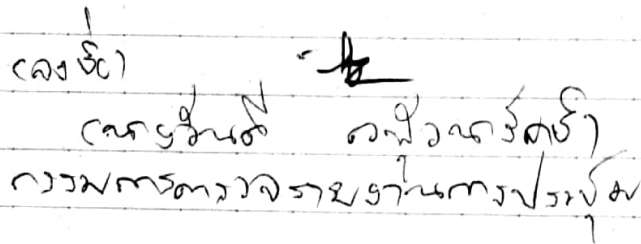 (ลงชื่อ)
(นายวันดี
กรรมการตรวจรายงานการประชุม